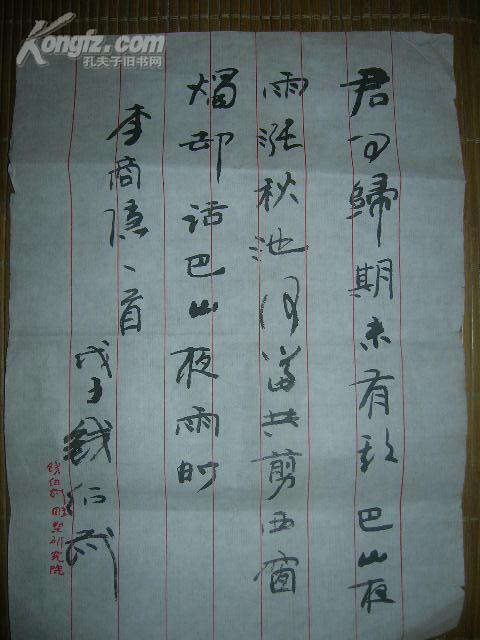 Kongfz.com
孔夫子旧书网
君问歸期未有期巴山夜
雨漲秋池何當共剪西窗
燭却話巴山夜雨时
李商隐一首
戊子錢绍武
钱绍武雕塑研究院